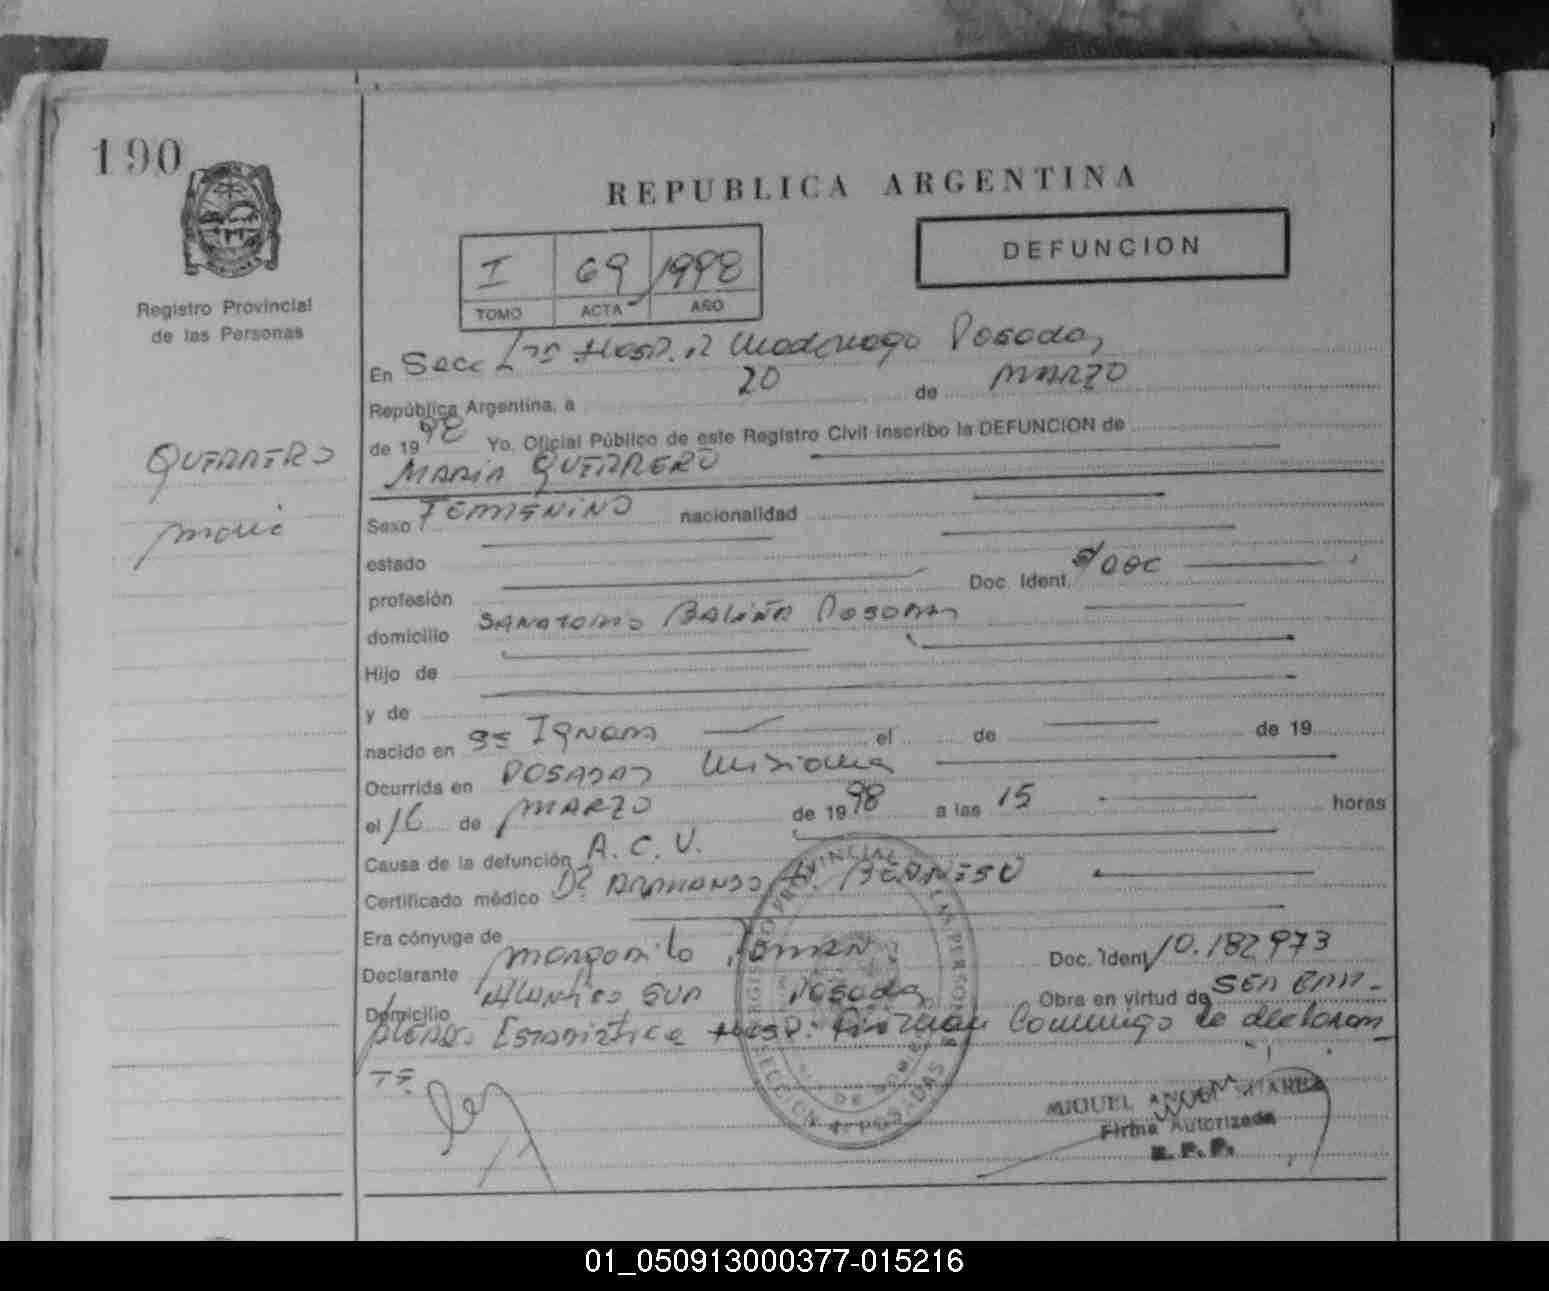 190
REPUBLICA ARGENTINA
DEFUNCION
I 69 1998
TOMO ACTA AÑO
Registro Provincial
de las Personas
En Secc 1ra Hosp. R Madariaga Posadas
República Argentina, a 20 de MARZO
de 1998 Yo, Oficial Público de este Registro Civil inscribo la DEFUNCION de
MARIA GUERRERO
GUERRERO
Maria
Sexo FEMENINO nacionalidad
estado
profesión Doc. Ident. S/DOC
domicilio SANATORIO BALIÑA POSADAS
Hijo de
y de
nacido en Sn Ignacio el de de 19
Ocurrida en POSADAS Misiones
el 16 de MARZO de 1998 a las 15 horas
Causa de la defunción A. C. V.
Certificado médico Dr.
Era cónyuge de
Declarante Margarita Roman Doc. Ident. 10.182973
Domicilio Atlantico SUR Posadas Obra en virtud de SER EMP-
PLEADO Estadistica Hosp. Comuniga la declaran
TE
REGISTRO PROVINCIAL PERSONAS
SECCION POSADAS
MIGUEL ANGEL SUAREZ
Firma Autorizada
R. P. P.
01_050913000377-015216